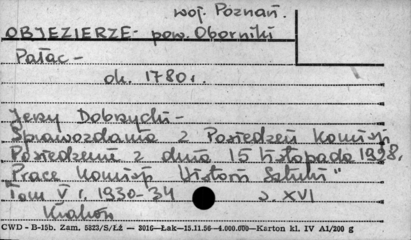 woj. Poznań.
OBJEZIERZE - pow. Oborniki
Pałac -
ok. 1780 r.
Jerzy Dobrzycki -
Sprawozdania z Posiedzeń Komisji
Posiedzenie z dnia 15 listopada 1928,
"Prace Komisji Historii Sztuki"
Tom V r. 1930-34 s. XVI
Kraków
CWD - B-15b. Zam. 5823/S/Łż — 3016—Łak—15.11.56—4.000.000—Karton kl. IV A1/200 g